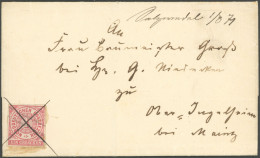 Salzwedel 1/8 70
An
Frau Baumeister Groß
bei Hr. G.
zu
Ober-Ingelheim
bei Mainz